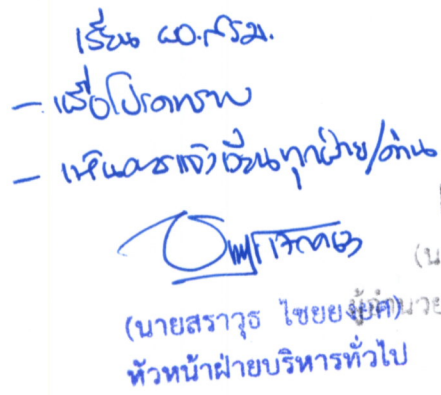 เรียน ผอ.สรม.
- เพื่อโปรดทราบ
- เห็นควรแจ้งเวียนทุกฝ่าย/ด่าน
(น
(นายสราวุธ ไชยยงยศ)
ผู้อำนวย
หัวหน้าฝ่ายบริหารทั่วไป